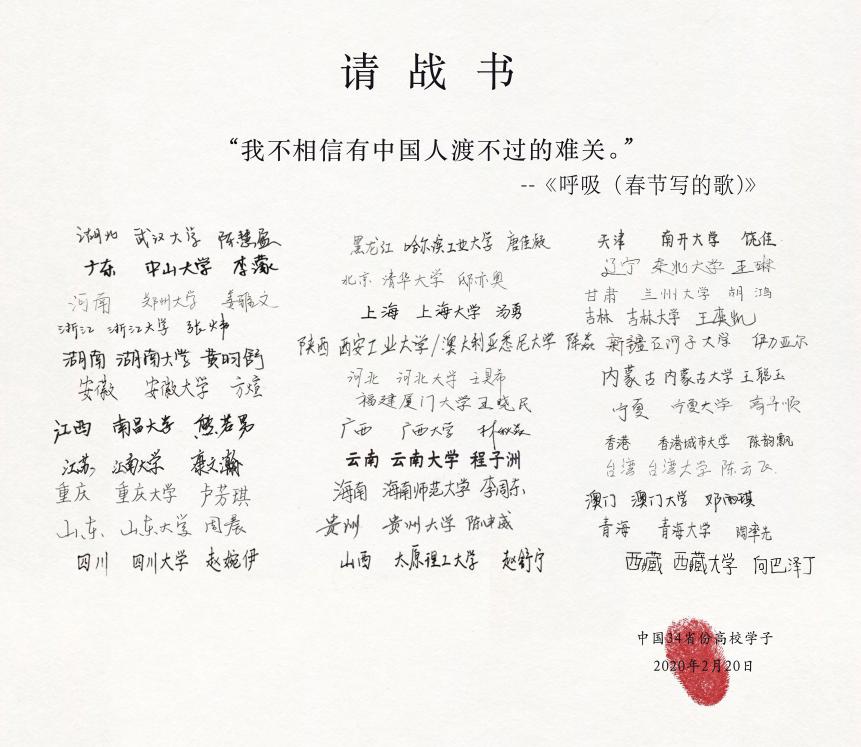 请战书
“我不相信有中国人渡不过的难关。”
--《呼吸（春节写的歌）》
湖北 武汉大学 陈慧盈
广东 中山大学 李濛
河南 郑州大学 姜雅文
浙江 浙江大学 张炜
湖南 湖南大学 黄昀舒
安徽 安徽大学 方煊
江西 南昌大学 熊若男
江苏 江南大学 秦文瀚
重庆 重庆大学 卢芳琪
山东 山东大学 周晨
四川 四川大学 赵婉伊
黑龙江 哈尔滨工业大学 唐佳敏
北京 清华大学 邸亦奥
上海 上海大学 汤勇
陕西 西安工业大学/澳大利亚悉尼大学 陈磊
河北 河北大学
福建厦门大学 王晓民
广西 广西大学
云南 云南大学 程子洲
海南 海南师范大学 李周东
贵州 贵州大学 陈申威
山西 太原理工大学 赵舒宁
天津 南开大学 饶佳
辽宁 东北大学 王琳
甘肃 兰州大学 胡鸿
吉林 吉林大学 王奕凯
新疆石河子大学 伊力亚尔
内蒙古 内蒙古大学 王聪玉
宁夏 宁夏大学 高子顺
香港 香港城市大学 陈韵飘
台湾 台湾大学 陈云飞
澳门 澳门大学 邓雨琪
青海 青海大学 陶率先
西藏 西藏大学 向巴泽丁
中国34省份高校学子
2020年2月20日